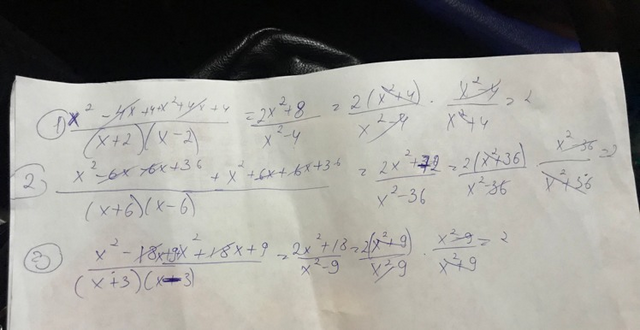 1) (x² - 4x + 4 + x² + 4x + 4) / ((x+2)(x-2)) = (2x² + 8) / (x² - 4) = 2(x² + 4) / (x² - 4) · (x² - 4) / (x² + 4) = 2
2) (x² - 6x - 6x + 36 + x² + 6x + 6x + 36) / ((x+6)(x-6)) = (2x² + 72) / (x² - 36) = 2(x² + 36) / (x² - 36) · (x² - 36) / (x² + 36) = 2
3) (x² - 18x + 9 + x² + 18x + 9) / ((x+3)(x-3)) = (2x² + 18) / (x² - 9) = 2(x² + 9) / (x² - 9) · (x² - 9) / (x² + 9) = 2